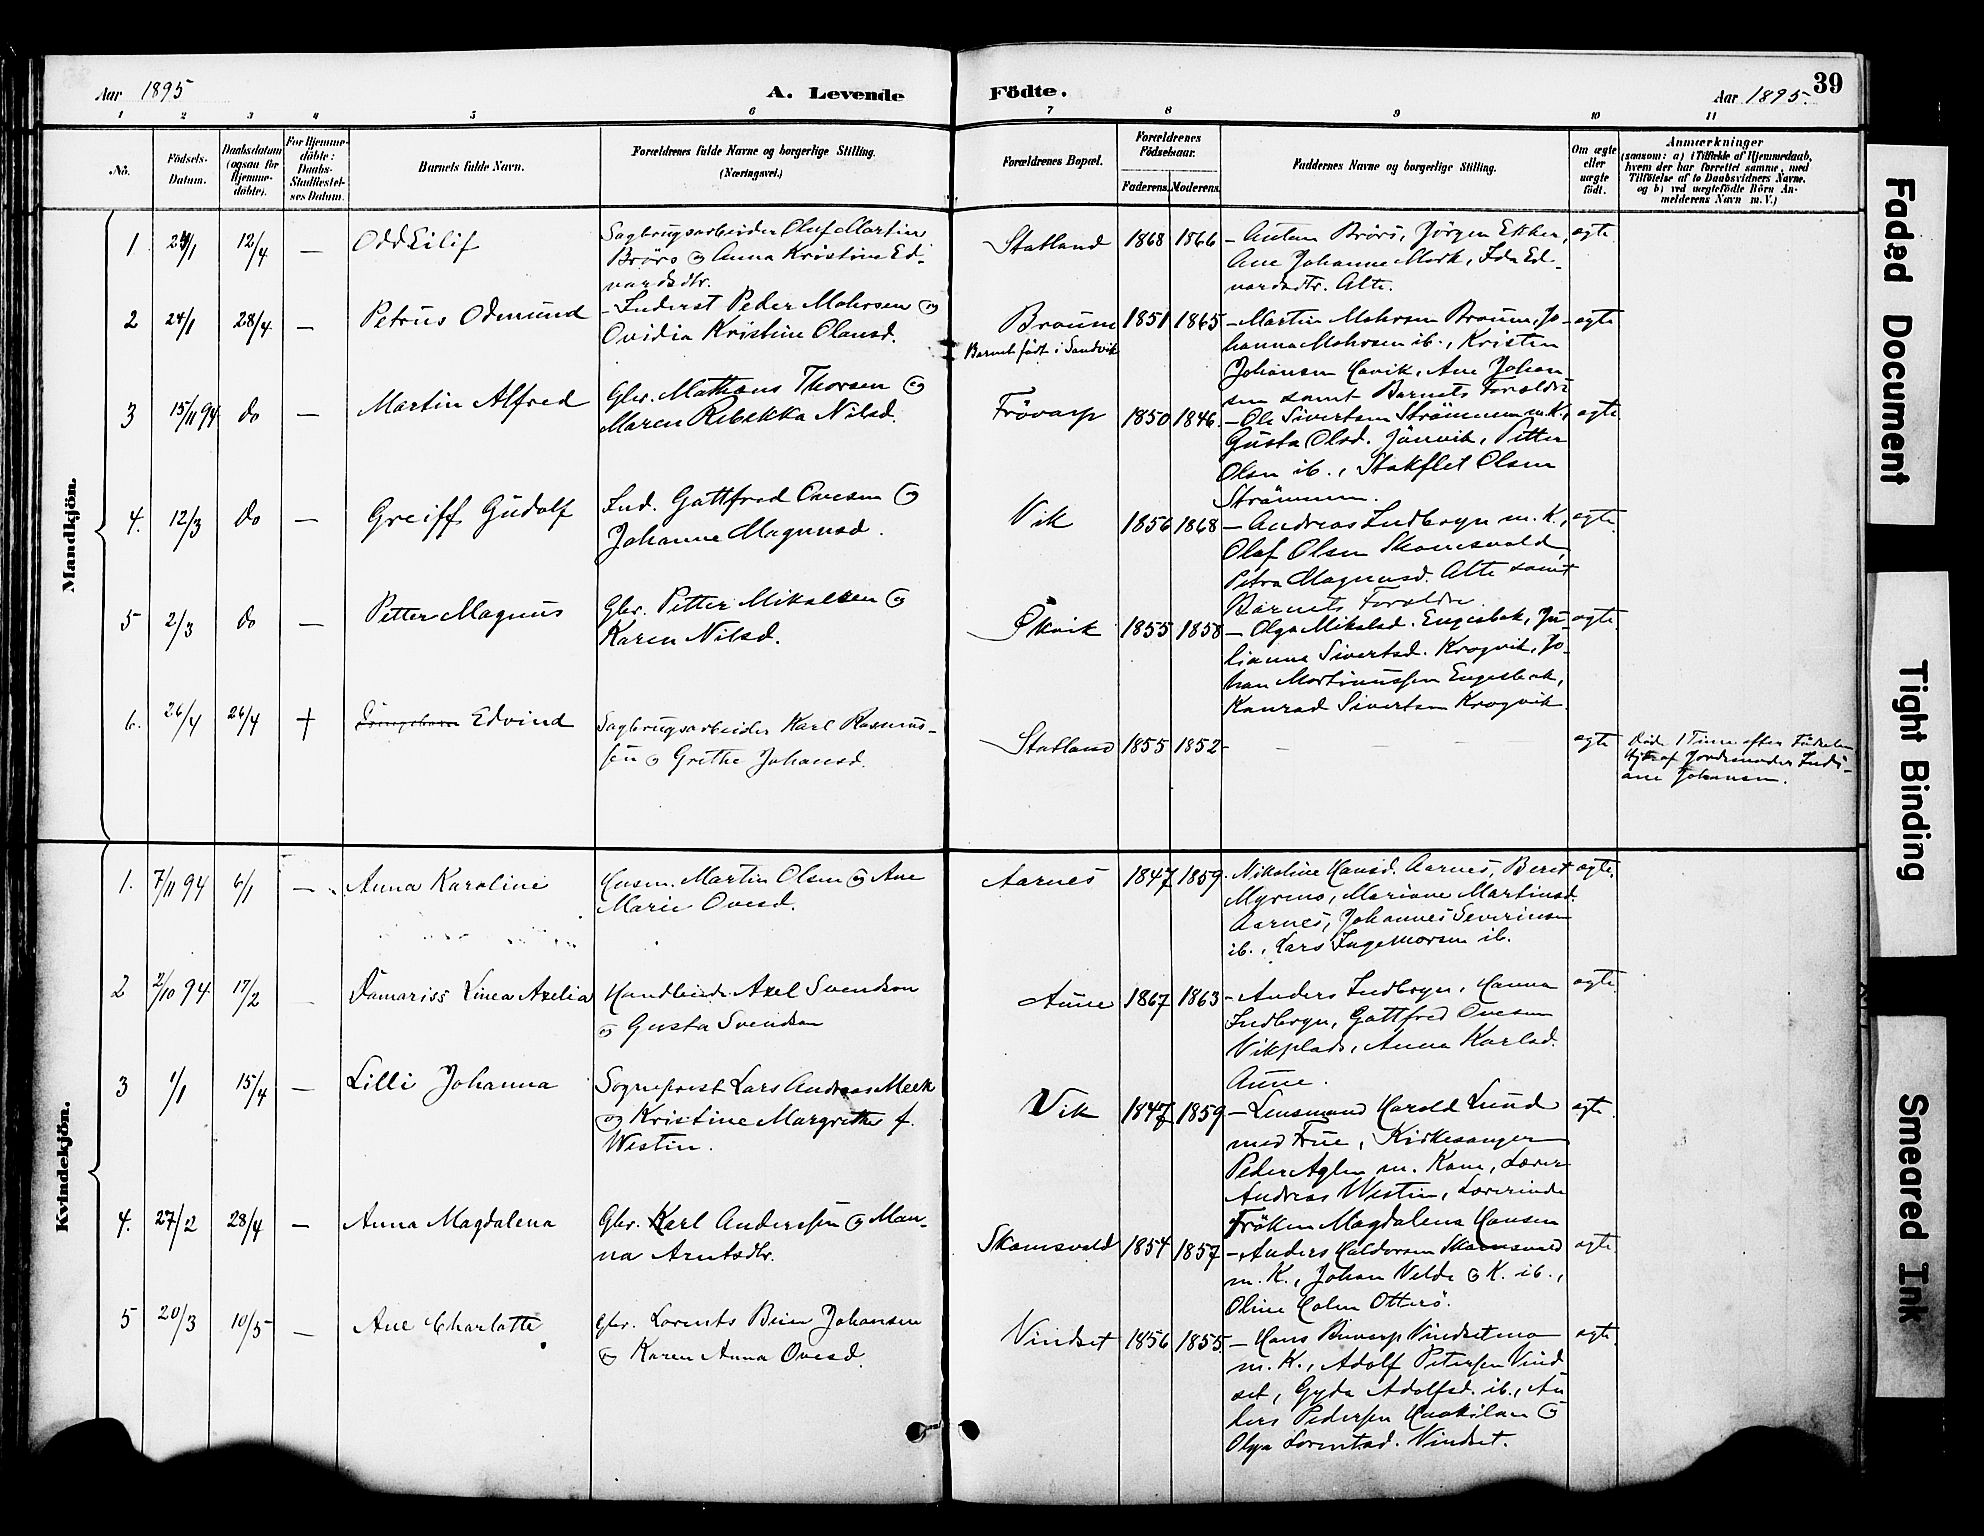 Aar 1895
A. Levende
Födte.
Aar 1895.
39
1 2 3 4 5 6 7 8 9 10 11
No.
Födsels-
Datum.
Daabsdatum
(ogsaa for
Hjemme-
döbte).
For Hjemme-
döbte:
Daabs-
Stadfæstel-
ses Datum.
Barnets fulde Navn.
Forældrenes fulde Navne og borgerlige Stilling.
(Næringsvei.)
Forældrenes Bopæl.
Forældrenes
Födselsaar.
Faderens. Moderens.
Faddernes Navne og borgerlige Stilling.
Om ægte
eller
uægte
födt.
Anmærkninger
(saasom: a) i Tilfælde af Hjemmedaab,
hvem der har forrettet samme, med
Tilföielse af to Daabsvidners Navne,
og b) ved uægtefödte Börn An-
melderens Navn m. V.)
Mandkjön.
1 24/1 12/4 — Odd Eilif
Sagbrugsarbeider Oluf Martin
Brörs og Anna Kristine Ed-
vardsdtr.
Statland 1868 1866
— Anton Brörs, Jörgen Ekker,
Ane Johanne Mork, Ida Ed-
vardsdtr. Alte.
ægte
2 24/1 28/4 — Petrus Odmund
— Inderst Peder Mohrsen og
Ovidia Kristine Olausd.
Braum
Barnet födt i Sandvik
1851 1865
— Martin Mohrsen Braum, Jo-
hanna Mohrsen ib., Kristen
Johansen Havik, Ane Johan
sen samt Barnets Forældre
ægte
3 15/11 94 do — Martin Alfred
Gbr. Mathæus Thorsen og
Maren Rebekka Nilsd.
Frövarp 1850 1846.
— Ole Sivertsen Strömmen m. K.,
Gusta Olsd. Jönvik, Petter
Olsen ib., Stokflet Olsen
Strömmen.
ægte
4. 12/3 do — Greiff Gudolf
Ind. Gottfred Ovesen og
Johanne Magnusd.
Vik 1856 1868
— Andreas Indbryn m. K.,
Olaf Olsen Skomsvold,
Petra Magnusd. Alte samt
Barnets Forældre
ægte.
5 2/3 do — Petter Magnus
Gbr. Petter Mikalsen og
Karen Nilsd.
Økvik 1855 1858
— Olga Mikalsd. Engesbak, Ju-
lianna Sivertsd. Krogvik, Jo-
han Martinussen Engesbak,
Konrad Sivertsen Krogvik.
ægte
6. 26/4 26/4 + Edvind
Sagbrugsarbeider Karl Rasmus-
sen og Grethe Johansd.
Statland 1855 1852 - — — — —
ægte
Döde 1 Time efter Födselen
Hjdt. af Jordemoder Indi-
ane Johansen.
Kvindekjön.
1. 7/11 94 6/1 — Anna Karoline
Husm. Martin Olsen og Ane
Marie Ovesd.
Aarnes 1847 1859
. Nikoline Hansd. Aarnes, Beret
Myrmo, Mariane Martinsd.
Aarnes, Johannes Severinsen
ib., Lars Ingemorsen ib.
ægte.
2 2/10 94 17/2 — Damariss Linea Axelia
Handlende Axel Svendsen
og Gusta Svendsen
Aune 1867 1863
- Anders Indbryn, Hanna
Indbryn, Gottfred Ovesen
Vikplads, Anna Karlsd.
Aune.
ægte
3 1/1 15/4 — Lilli Johanna
Sogneprest Lars Andreas Meek
og Kristine Margrethe f.
Westin.
Vik 1847 1859
— Lensmand Harald Lund
med Frue, Kirkesanger
Peder Aglen m. Kone, Lærer
Andreas Westin, Lærerinde
Fröken Magdalena Hansen
ægte
4. 27/2 28/4 — Anna Magdalena
Gbr. Karl Anderssen og Man-
na Arntsdtr.
Skomsvold 1854 1857
— Anders Haldorsen Skomsvold
m. K., Johan Velde og K. ib.,
Oline Holm Otterö.
ægte
5 20/3 10/5 — Ane Charlotte
Gbr. Lorents Beier Johansen
og Karen Anna Ovesd.
Vindset 1856 1855
— Hans Buvarp Vindsetmo
m. K., Adolf Petersen Vind
set, Gyda Adolfsd. ib., An
ders Pedersen og
Olga Lorentsd. Vindset.
ægte.
Faded Document
Tight Binding
Smeared Ink